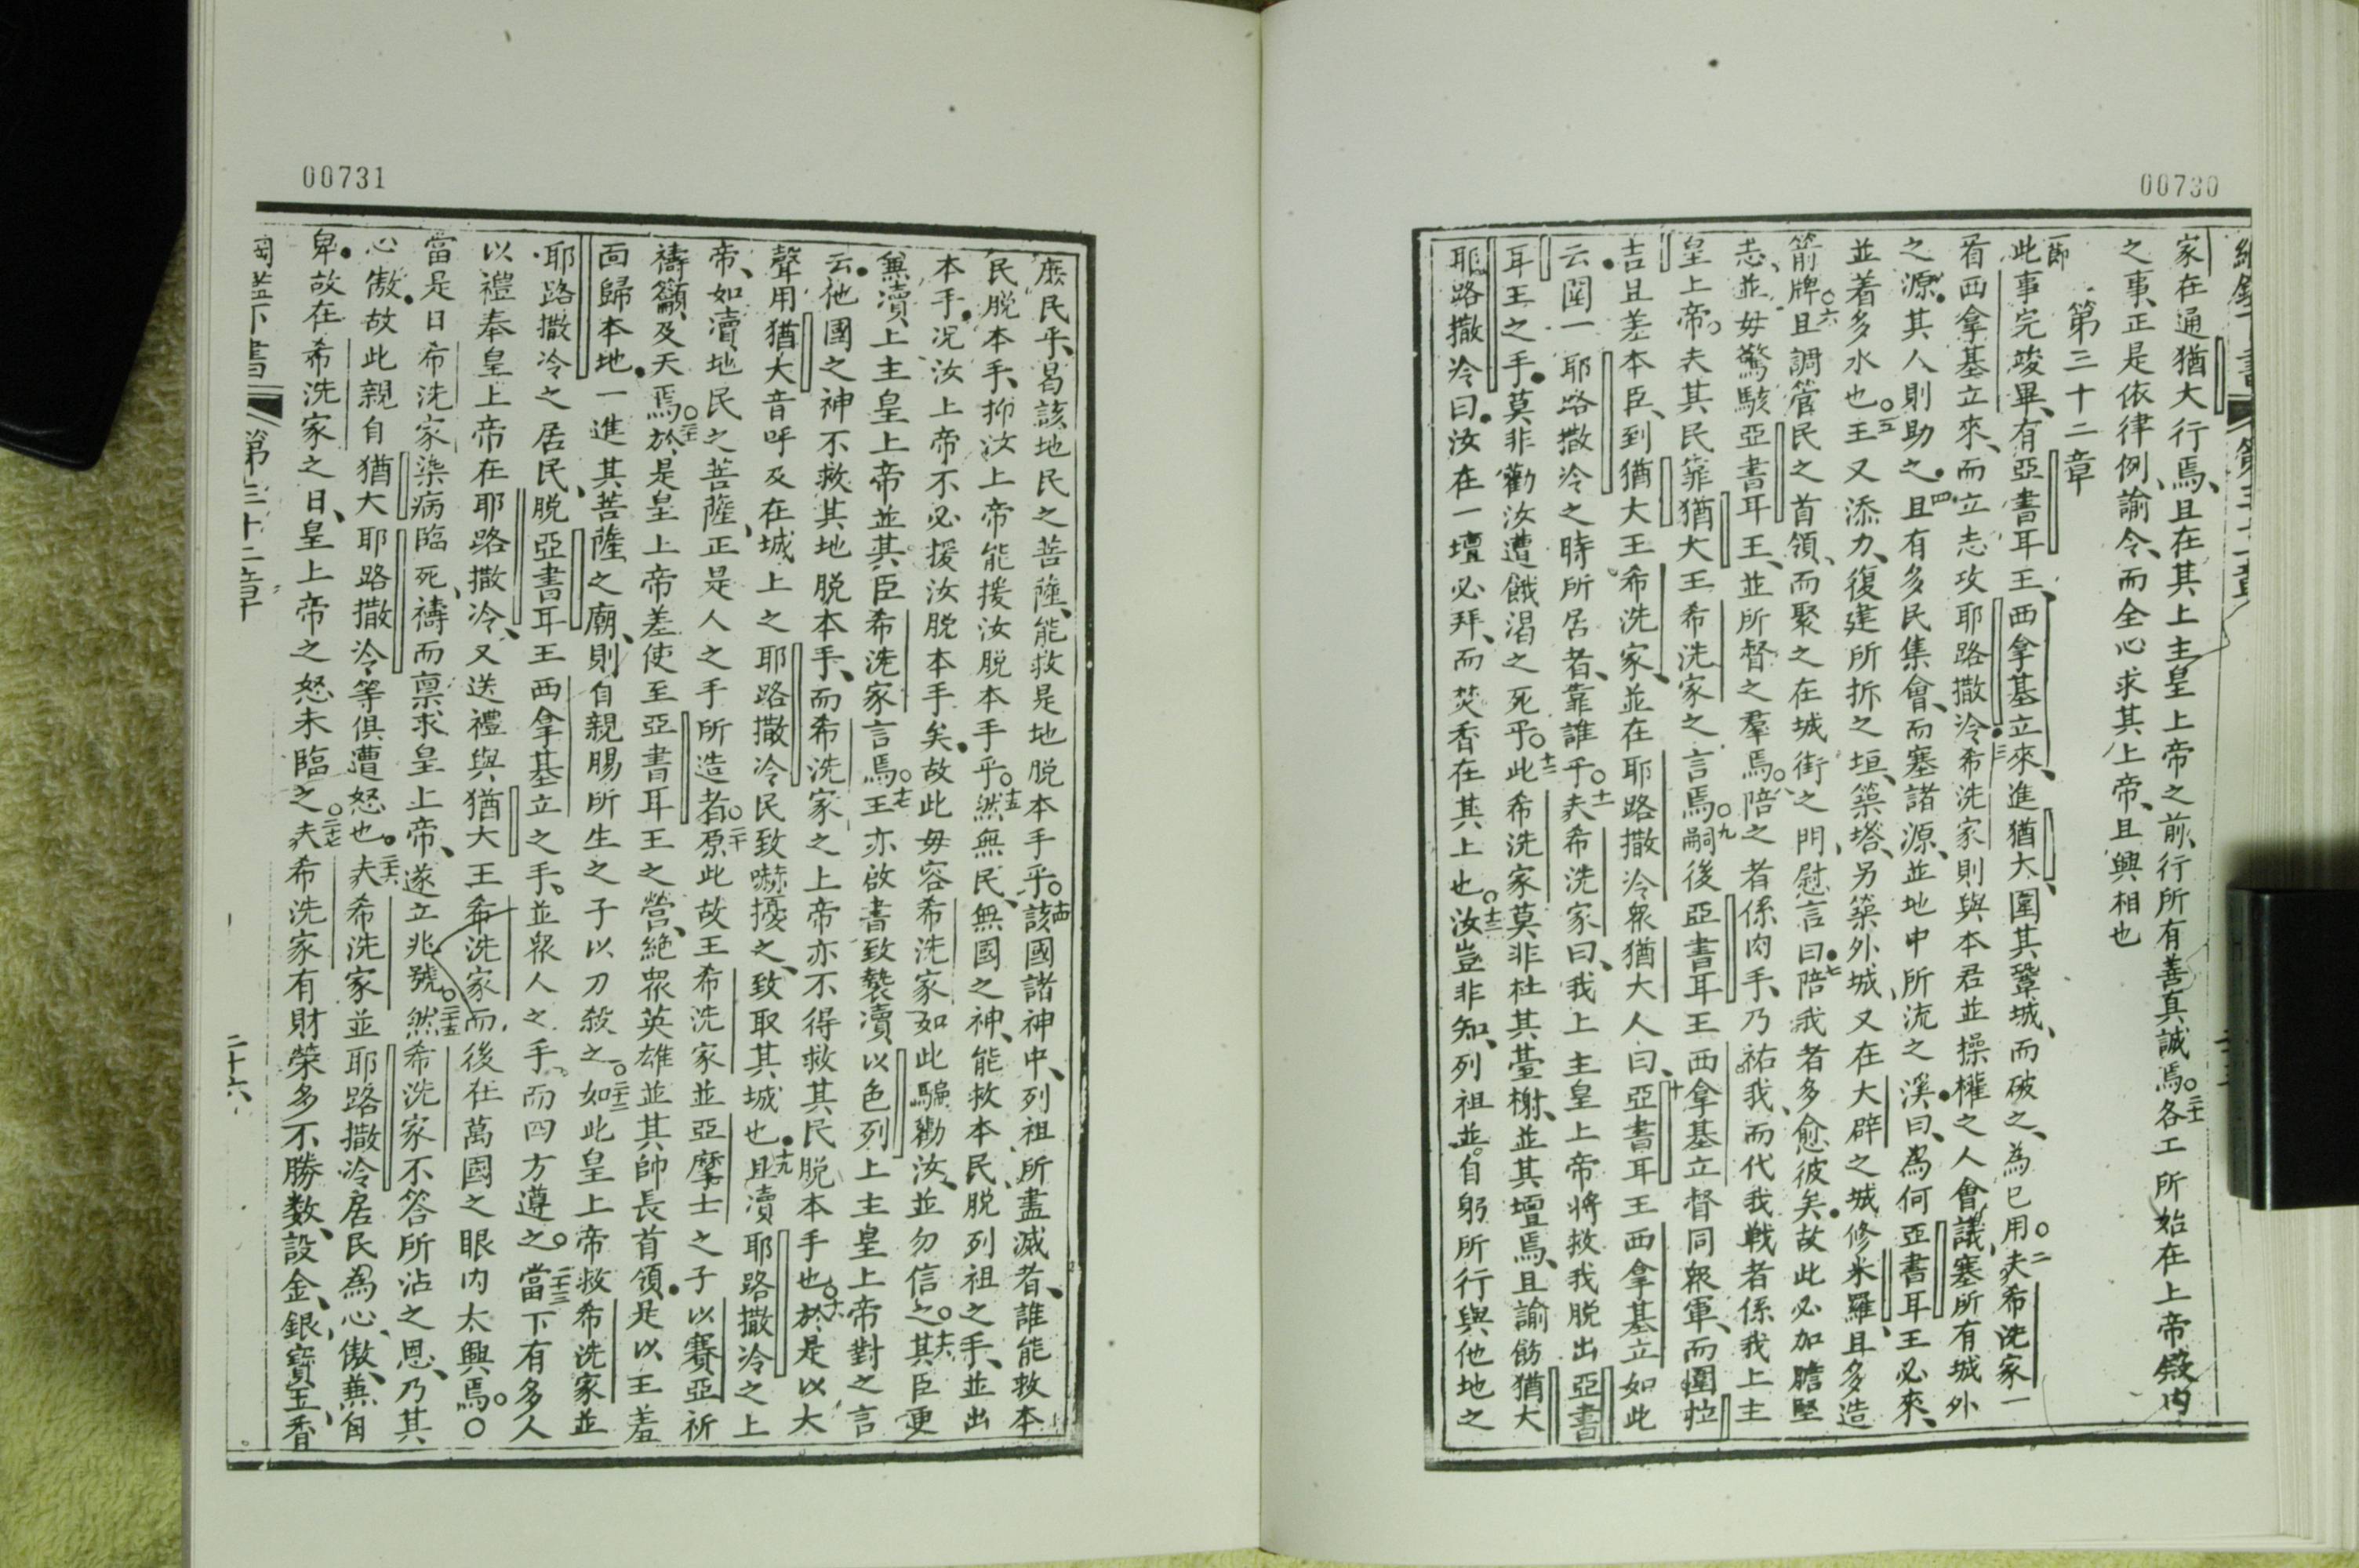 00730
家在通猶大行焉、且在其上主皇上帝之前、行所有善真誠焉。二十一各工所始在上帝殿內
之事、正是依律例、諭令、而全心求其上帝、且興相也
第三十二章
一節此事完竣畢、有亞書耳王、西拿基立來、進猶大、圍其鞏城、而破之、為己用。二夫希洗家一
看西拿基立來、而立志攻耶路撒冷。三希洗家則與本君並操權之人會議、塞所有城外
之源。其人則助之。四且有多民集會、而塞諸源、並地中所流之溪。曰、為何亞書耳王必來、
並着多水也。五王又添力、復建所折之垣、築塔、另築外城、又在大辟之城修米羅、且多造
箭牌。六且調管民之首領、而聚之在城街之門、慰言曰。七陪我者多愈彼矣。故此必加膽堅
志、並毋驚駭亞書耳王、並所督之羣焉。八陪之者係肉手、乃祐我、而代我戰者係我上主
皇上帝。夫其民靠猶大王希洗家之言焉。九嗣後亞書耳王西拿基立督同眾軍、而圍拉
吉且差本臣、到猶大王希洗家、並在耶路撒冷眾猶大人曰、十亞書耳王西拿基立如此
云、圍一耶路撒冷之時所居者、靠誰乎。十一夫希洗家曰、我上主皇上帝將救我脫出亞書
耳王之手。莫非勸汝遭餓渴之死乎。十二此希洗家莫非杜其臺榭、並其壇焉、且諭飭猶大
耶路撒冷曰。汝在一壇必拜、而焚香在其上也。十三汝豈非知、列祖並自躬所行與他地之
00731
庶民乎、曷該地民之菩薩、能救是地脫本手乎。十四該國諸神中、列祖所盡滅者、誰能救本
民脫本手、抑汝上帝能援汝脫本手乎。十五然無民、無國之神、能救本民、脫列祖之手、並出
本手。況汝上帝不必援汝脫本手矣。故此毋容希洗家如此騙勸汝、並勿信之。十六其臣更
無瀆、上主皇上帝並其臣希洗家言焉。十七王亦啟書致褻瀆以色列上主皇上帝對之言
云。他國之神不救其地脫本手、而希洗家之上帝亦不得救其民脫本手也。十八於是以大
聲用猶大音呼及在城上之耶路撒冷民致嚇擾之、致取其城也。十九且瀆耶路撒冷之上
帝、如瀆地民之菩薩、正是人之手所造者。二十原此故王希洗家並亞摩士之子以賽亞祈
禱籲及天焉。二十一於是皇上帝差使至亞書耳王之營、絕眾英雄並其帥長首領。是以王羞
面歸本地。一進其菩薩之廟、則自親賜所生之子以刀殺之。二十二如此皇上帝救希洗家並
耶路撒冷之居民、脫亞書耳王西拿基立之手。並眾人之手。而四方遵之。二十三當下有多人
以禮奉皇上帝在耶路撒冷、又送禮與猶大王希洗家而後在萬國之眼內太興焉。
當是日希洗家染病臨死、禱而禀求皇上帝、遂立兆號。二十五然希洗家不答所沾之恩、乃其
心傲。故此親自猶大耶路撒冷等俱遭怒也。二十六夫希洗家並耶路撒冷居民為心傲、兼自
卑。故在希洗家之日、皇上帝之怒未臨之。二十七夫希洗家有財榮多不勝數、設金、銀、寶玉、香
第三十二章
二十六